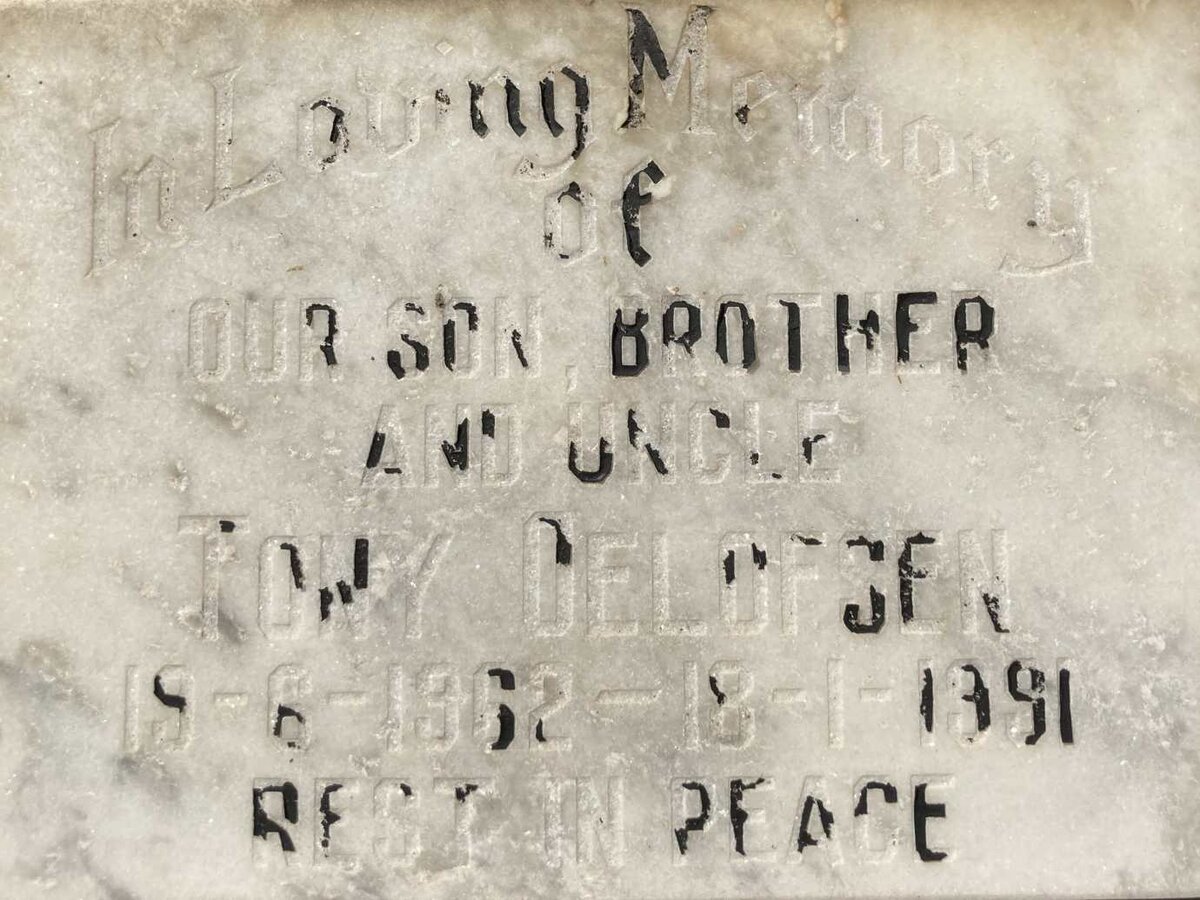 In Loving Memory
of
OUR SON, BROTHER
AND UNCLE
TONY DELOFSEN
19-6-1962 — 18-1-1991
REST IN PEACE